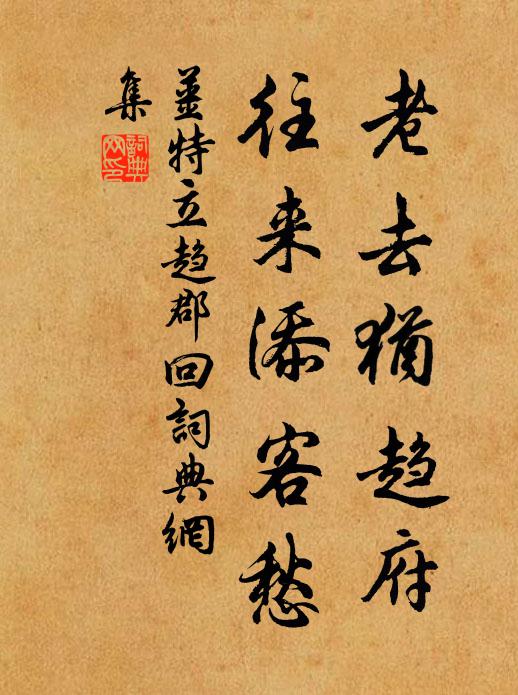 老去犹趋府
往来添客愁
姜特立趋郡回词典网
集
詞典
网印